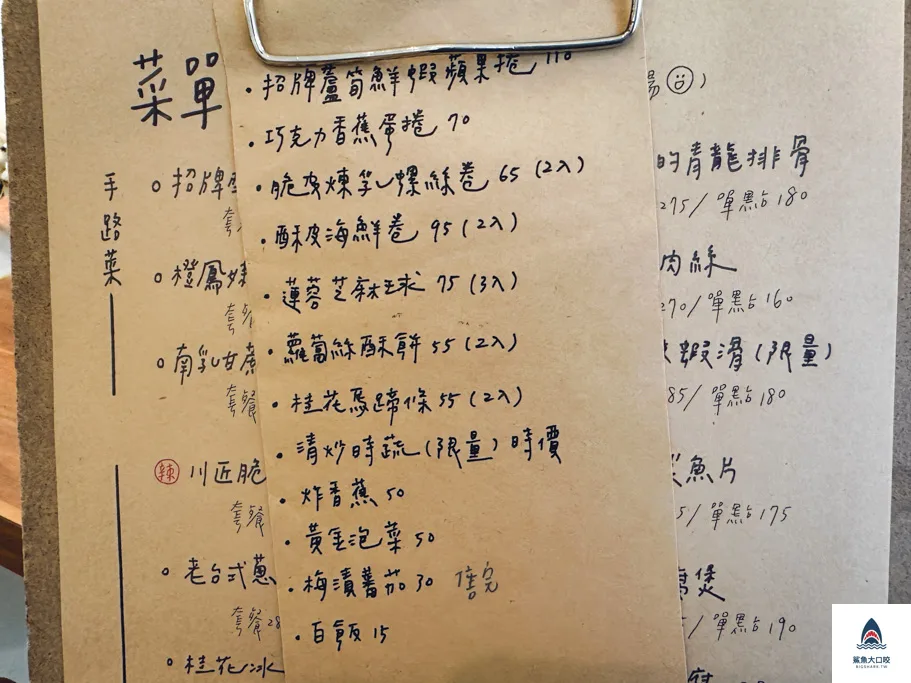 菜單
手路菜
招牌
套
橙鳳
套餐
南乳甘蔗
套餐
辣 川匠脆
套餐
老台式蔥
套餐 28
桂花冰
・招牌蘆筍鮮蝦蘋果捲 110
・巧克力香蕉蛋捲 70
・脆皮煉乳螺絲卷 65 (2入)
・酥皮海鮮卷 95 (2入)
・蓮蓉芝麻球 75 (3入)
・蘿蔔絲酥餅 55 (2入)
・桂花馬蹄條 55 (2入)
・清炒時蔬 (限量) 時價
・炸香蕉 50
・黃金泡菜 50
・梅漬蕃茄 30 售完
・白飯 15
湯 )
的青龍排骨
275/ 單點 180
肉絲
270/ 單點 160
蝦滑 (限量)
85/ 單點 180
魚片
5/ 單點 175
煲
/ 單點 190
鯊魚大口咬
BIGSHARK.TW